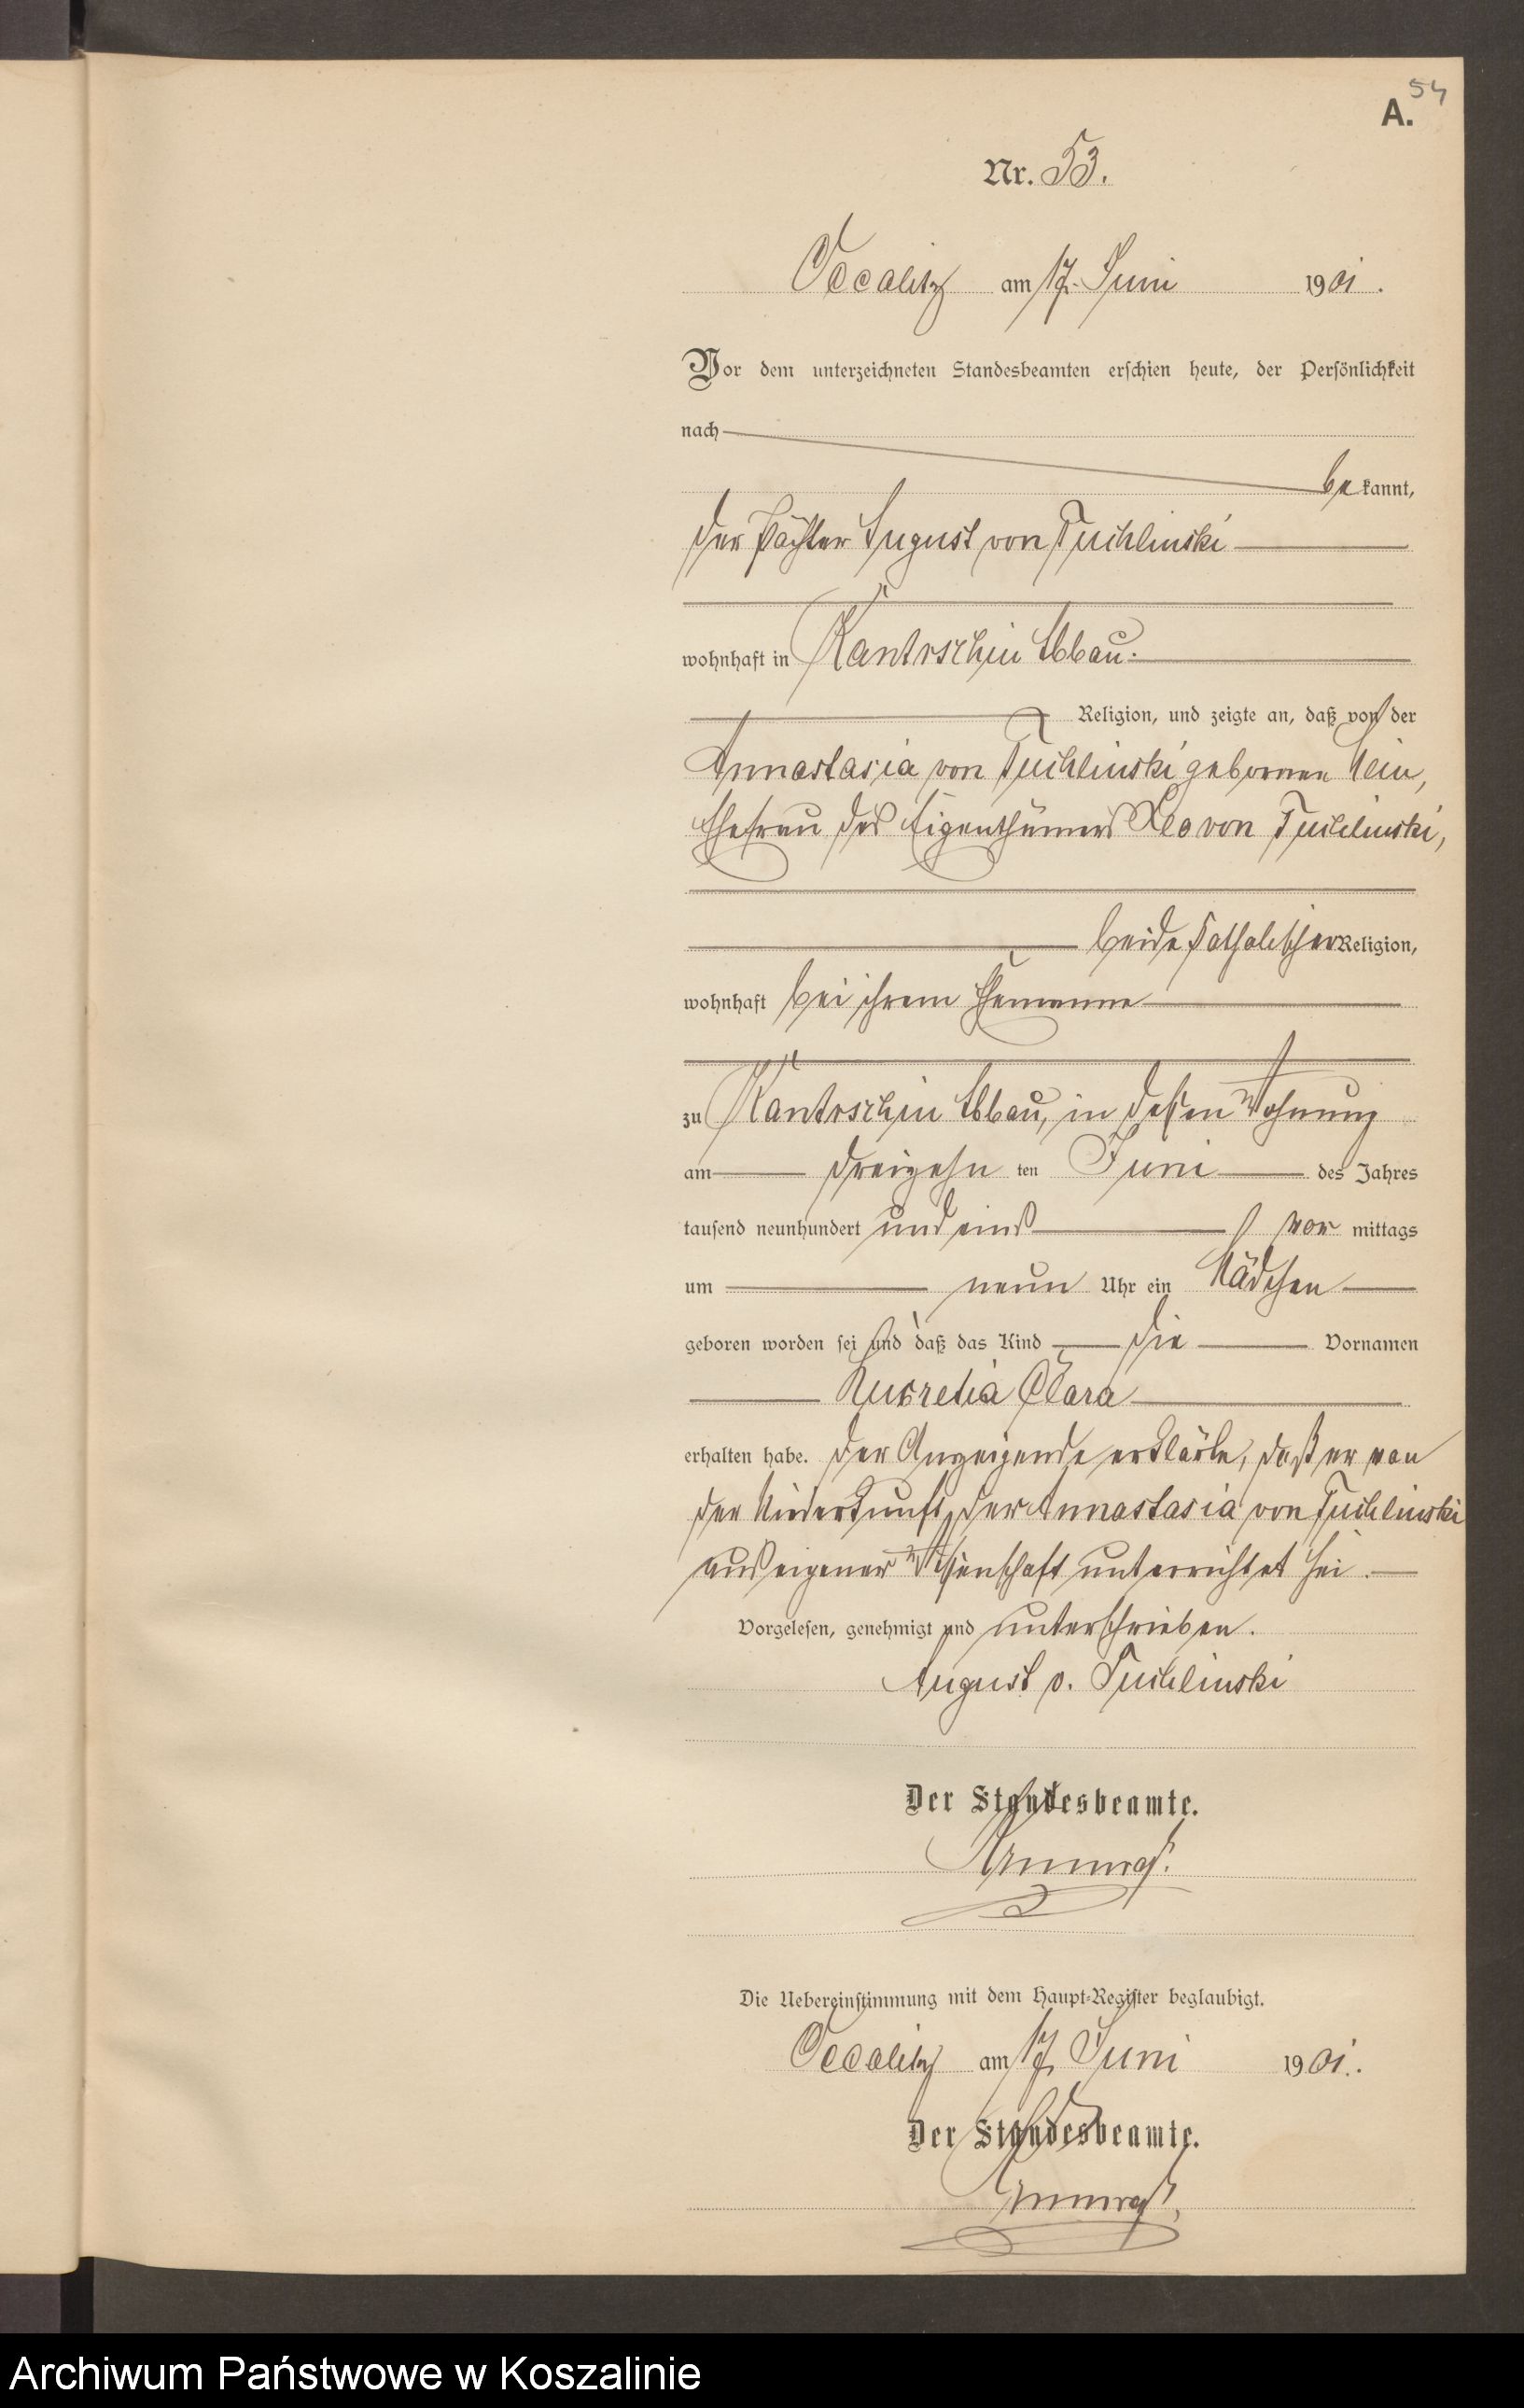 54
A.
Nr. 53.
Occalitz am 17. Juni 1901.
Vor dem unterzeichneten Standesbeamten erschien heute, der Persönlichkeit
nach
bekannt,
der Pächter August von Tuchlinski
wohnhaft in Kantrschin Abbau.
Religion, und zeigte an, daß von der
Annastasia von Tuchlinski gebornen
Ehefrau des Eigenthümers Leo von Tuchlinski,
beide katholischer Religion,
wohnhaft bei ihrem Ehemanne
zu Kantrschin Abbau, in dessen Wohnung
am dreizehn ten Juni des Jahres
tausend neunhundert und eins vor mittags
um neun Uhr ein Mädchen
geboren worden sei und daß das Kind die Vornamen
Lukretia Clara
erhalten habe. Der Anzeigende erklärte, daß er von
der Niederkunft der Annastasia von Tuchlinski
aus eigener Wissenschaft unterrichtet sei.
Vorgelesen, genehmigt und unterschrieben.
August v. Tuchlinski
Der Standesbeamte.
Die Uebereinstimmung mit dem Haupt-Register beglaubigt.
Occalitz am 17. Juni 1901.
Der Standesbeamte.
Archiwum Państwowe w Koszalinie